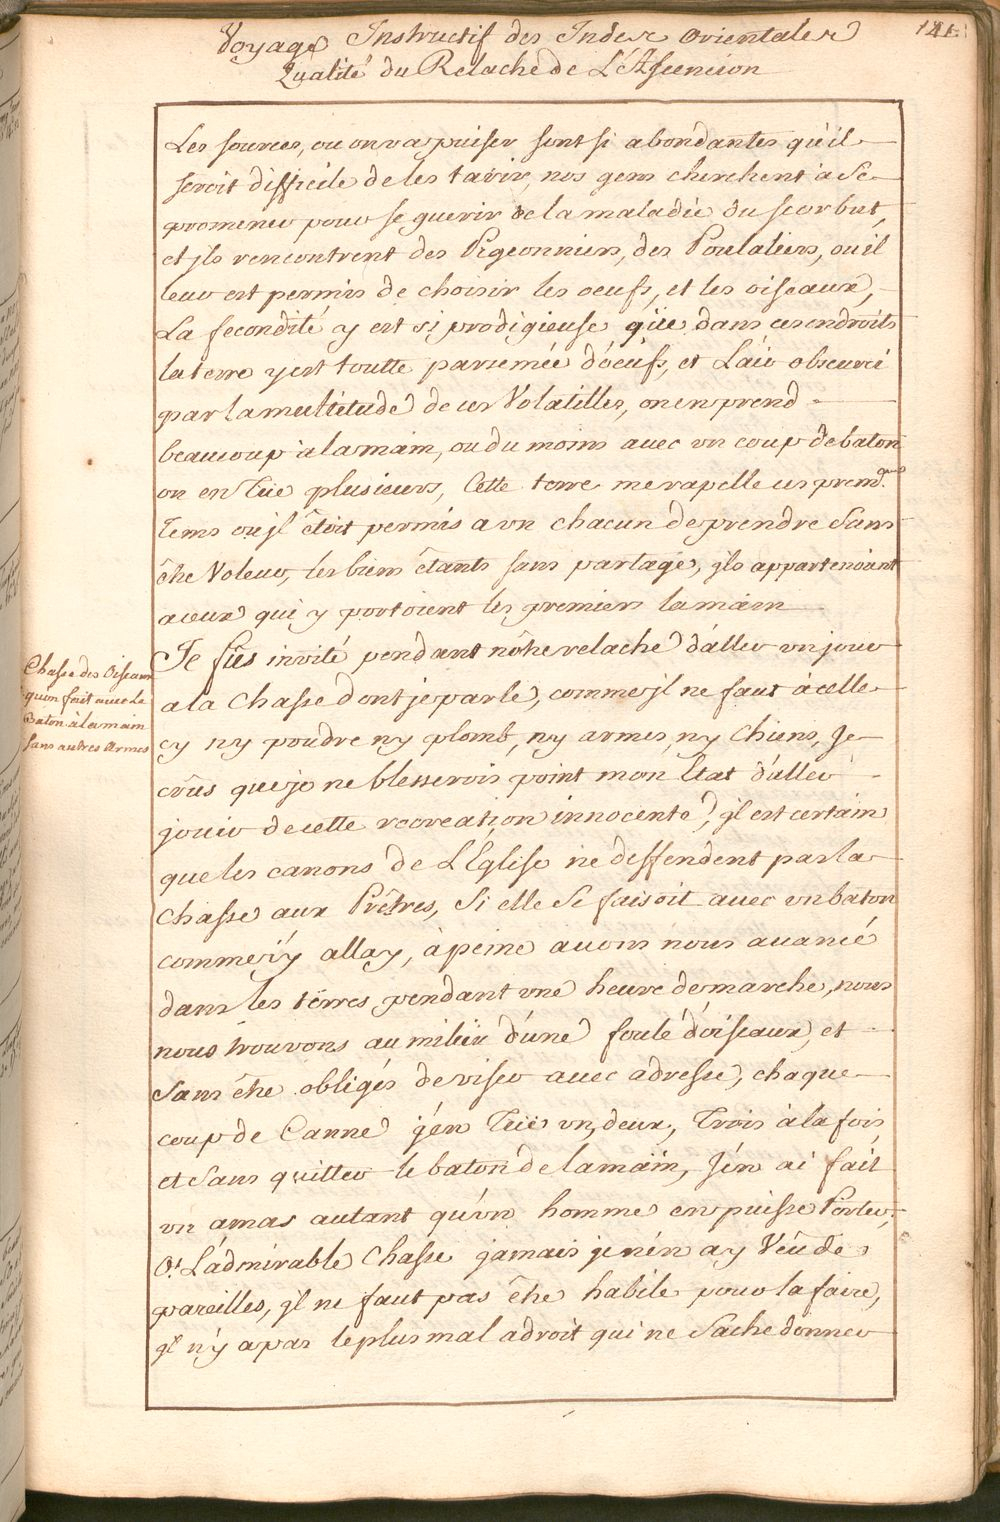 Voyage Instructif des Indes Orientales
141
Qualité du Relache de L'Ascencion
Les sources, ou on va puiser sont si abondantes qu'il
seroit difficile de les tarir, nos gens cherchent à se
promener pour se guerir de la maladie du scorbut,
et jls rencontrent des Pigeonniers, des Poulaliers, ou il
leur est permis de choisir les oeufs, et les oiseaux,
La fecondité y est si prodigieuse que dans ces endroits
la terre y est toutte parsemée d'oeufs, et L'air obscurci
par la multitude de ces Volatilles, on en prend
beaucoup à la main, ou du moins avec un coup de baton
on en Tüe plusieurs, Cette terre me rapelle ces prem.rs
Tems ou jl étoit permis a un chacun de prendre sans
être Voleur, les biens étants sans partage, jls appartenoient
a ceux qui y portoient les premiers la main
Chasse des Oiseaux
qu'on fait avec le
Baton à la main
sans autres Armes
Je fûs invité pendant nôtre relache d'aller un jour
a la chasse dont je parle, comme jl ne faut à celle
cy ny poudre ny plomb, ny armes, ny chiens, je
crûs que je ne blesserois point mon Etat d'aller
jouir de cette recreation innocente, jl est certain
que les canons de L'Eglise ne deffendent pas la
chasse aux Prêtres, si elle se faisoit avec un baton
comme j'y allay, à peine avons nous avancé
dans les terres pendant une heure de marche, nous
nous trouvons au milieu d'une foule d'oiseaux, et
sans être obligés de viser avec adresse, chaque
coup de Canne j'en Tüe un, deux, Trois à la fois
et sans quitter le baton de la main, J'en ai fait
un amas autant qu'un homme en puisse Porter.
O! L'admirable Chasse jamais je n'en ay Veû de
pareilles, jl ne faut pas être habile pour la faire,
jl n'y a pas le plus mal adroit qui ne Sache donner